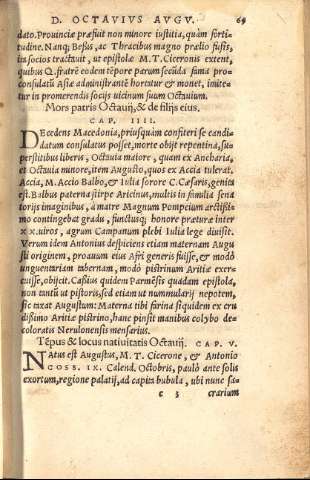 D. OCTAVIVS AVGV. 69
dato. Prouinciæ præfuit non minore iustitia, quàm forti-
tudine. Nanq; Bessis, ac Thracibus magno prælio fusis,
ita socios tractauit, ut epistolæ M. T. Ciceronis extent,
quibus Q. fratrē eodem tēpore parum secūda fama pro-
consulatū Asiæ administrantē hortatur & monet, imite-
tur in promerendis socijs uicinum suum Octauium.
Mors patris Octauij, & de filijs eius.
CAP. IIII.
DEcedens Macedonia, priusquàm confiteri se candi-
datum consulatus posset, morte obijt repentina, su-
perstitibus liberis, Octauia maiore, quam ex Ancharia,
et Octauia minore, item Augusto, quos ex Accia tulerat.
Accia, M. Accio Balbo, & Iulia sorore C. Cæsaris, genita
est. Balbus paterna stirpe Aricinus, multis in familia sena
torijs imaginibus, à matre Magnum Pompeium arctissi-
mo contingebat gradu, functusq; honore præturæ inter
xx.uiros, agrum Campanum plebi Iulia lege diuisit.
Verum idem Antonius despiciens etiam maternam Augu
sti originem, proauum eius Afri generis fuisse, & modò
unguentariam tabernam, modò pistrinum Aritiæ exer-
cuisse, obijcit. Cassius quidem Parmēsis quadam epistola,
non tantū ut pistoris, sed etiam ut nummularij nepotem,
sic taxat Augustum: Materna tibi farina siquidem ex cru
dissimo Aritiæ pistrino, hanc pinsit manibus colybo de-
coloratis Nerulonensis mensarius.
Tēpus & locus natiuitatis Octauij. CAP. V.
NAtus est Augustus, M. T. Cicerone, & Antonio
COSS. IX. Calend. Octobris, paulò ante solis
exortum, regione palatij, ad capita bubula, ubi nunc sa-
c 5 crarium